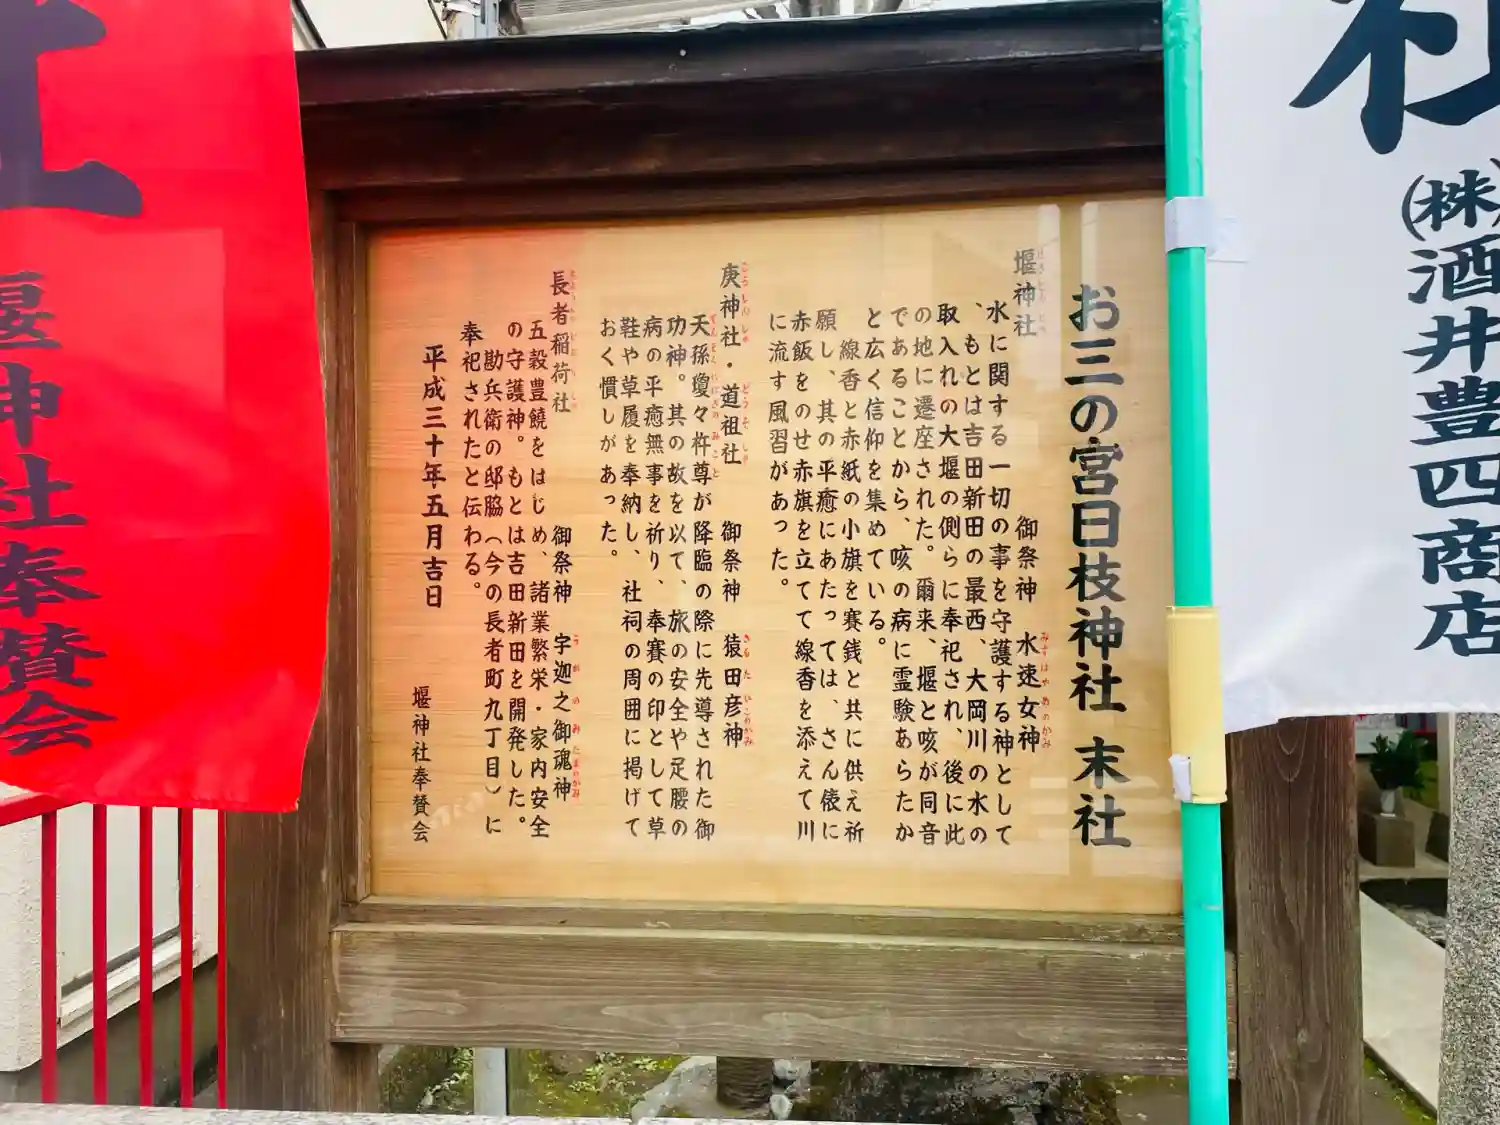 お三の宮日枝神社 末社
堰神社 御祭神 水速女神
せきじんじゃ みずはやめのかみ
水に関する一切の事を守護する神として
、もとは吉田新田の最西、大岡川の水の
取入れの大堰の側らに奉祀され、後に此
の地に遷座された。爾来、堰と咳が同音
であることから、咳の病に霊験あらたか
と広く信仰を集めている。
線香と赤紙の小旗を賽銭と共に供え祈
願し、其の平癒にあたっては、さん俵に
赤飯をのせ赤旗を立てて線香を添えて川
に流す風習があった。
庚神社・道祖社 御祭神 猿田彦神
こうしんしゃ どうそしゃ さるたひこのかみ
天孫瓊々杵尊が降臨の際に先導された御
てんそんににぎのみこと
功神。其の故を以て、旅の安全や足腰の
病の平癒無事を祈り、奉賽の印として草
鞋や草履を奉納し、社祠の周囲に掲げて
おく慣しがあった。
長者稲荷社 御祭神 宇迦之御魂神
うがのみたまのかみ
五穀豊饒をはじめ、諸業繁栄・家内安全
の守護神。もとは吉田新田を開発した。
勘兵衛の邸脇（今の長者町九丁目）に
奉祀されたと伝わる。
平成三十年五月吉日
堰神社奉賛会
社
(株)酒井豊四商店
社
堰神社奉賛会